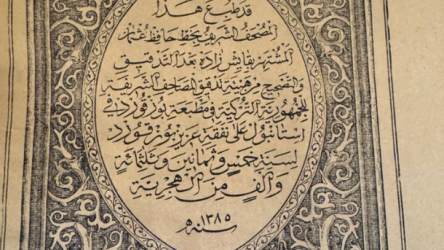 قد طبع هذا
المصحف الشريف بخط حافظ عثمان
المشتهر بقايش زاده بعد التدقيق
والتصحيح من هيئة تدقيق المصاحف الشريفة
للجمهورية التركية في مطبعة بوزقورد في
استانبول على نفقة عزيز بوزقورد
لسنة خمس وثمانين وثلثمائة
وألف من الهجرية
سنة ١٣٨٥ ه